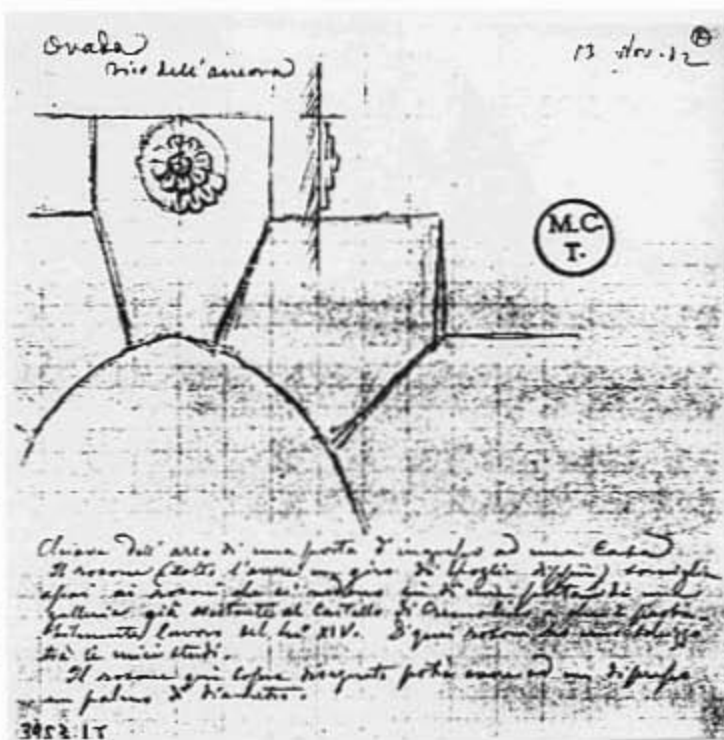 Ovada
vico dell'ancora
13 Nov. 82
M.C.
T.
Chiave dell'arco di una porta d'ingresso ad una Casa
Il rosone (tolto l'avere un giro di foglie di più) somiglia
assai ai rosoni che si vedono di una
galleria già esistente al Castello di Cremolino
lavoro del XIV. Di quei rosoni ho uno schizzo
tra le miei studi.
Il rosone qui sopra disegnato potrà avere ad un dipresso
un palmo di diametro.